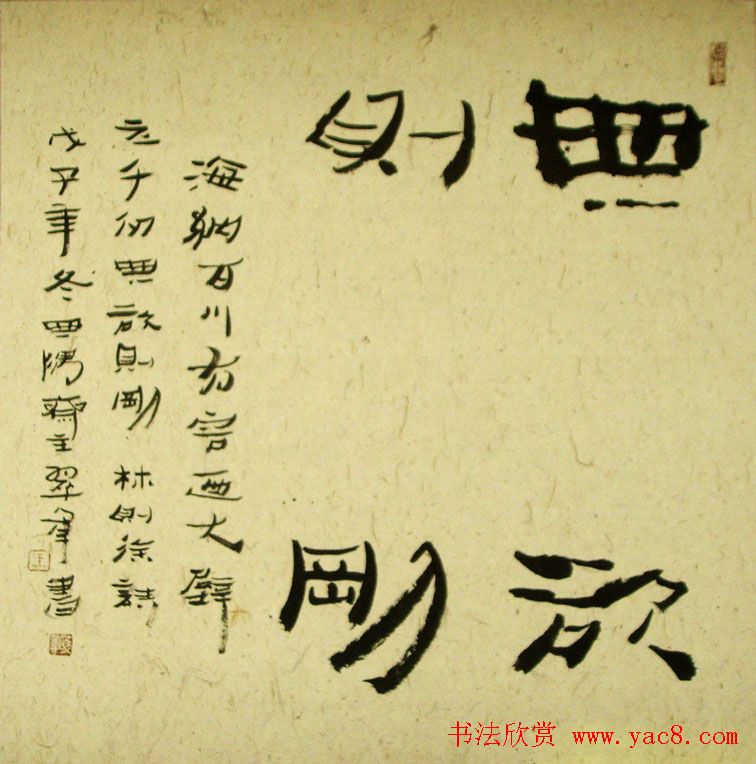 無欲
則剛
海納百川有容迺大壁
立千仞無欲則剛 林則徐
戊子年冬無隅齋主翠峯書
书法欣赏 www.yac8.com